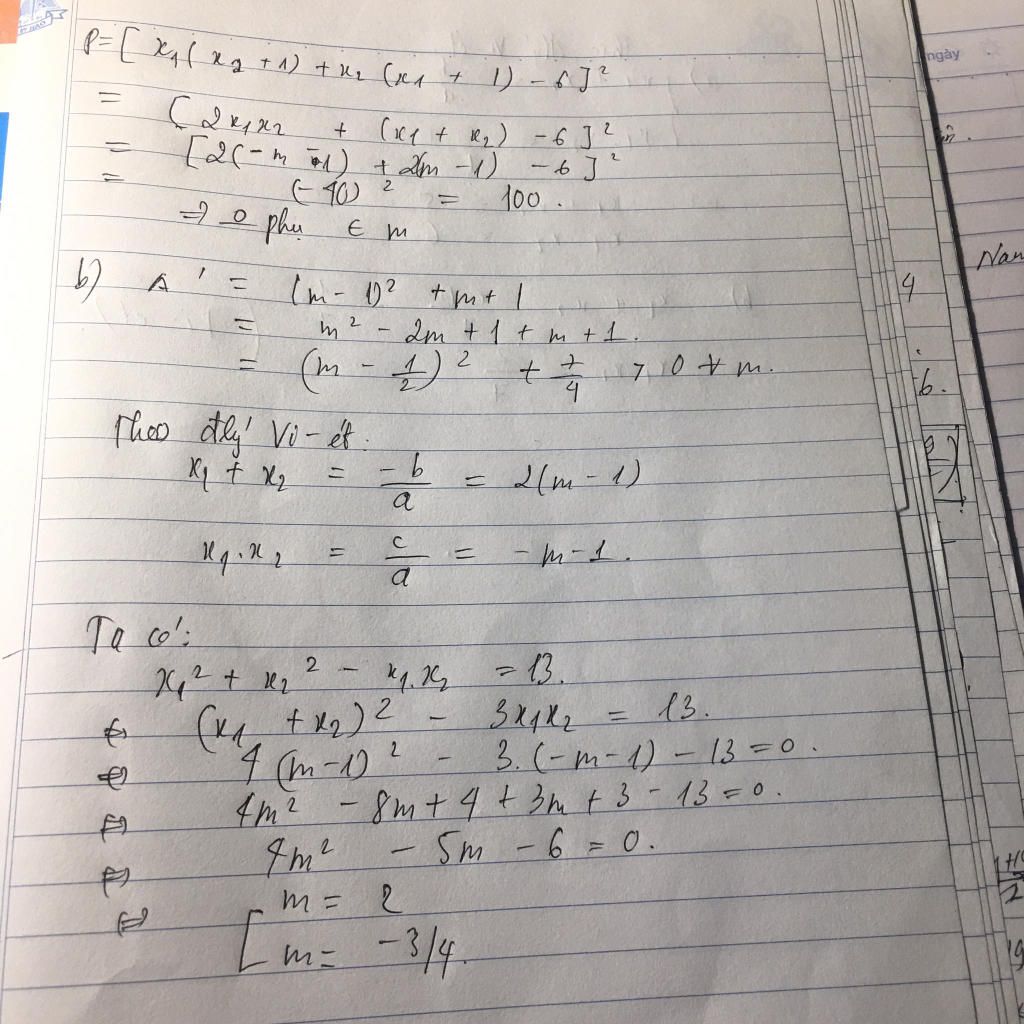 P = [x₁(x₂ + 1) + x₂(x₁ + 1) - 6]²
= [2x₁x₂ + (x₁ + x₂) - 6]²
= [2(-m - 1) + 2(m - 1) - 6]²
= (-10)² = 100.
⇒ 0 phụ ∈ m
b) Δ' = (m - 1)² + m + 1
= m² - 2m + 1 + m + 1.
= (m - 1/2)² + 7/4 > 0 ∀ m.
Theo đlý Vi-ét.
x₁ + x₂ = -b/a = 2(m - 1)
x₁.x₂ = c/a = -m - 1.
Ta có:
x₁² + x₂² - x₁.x₂ = 13.
⇔ (x₁ + x₂)² - 3x₁x₂ = 13.
⇔ 4(m-1)² - 3.(-m-1) - 13 = 0.
⇔ 4m² - 8m + 4 + 3m + 3 - 13 = 0.
⇔ 4m² - 5m - 6 = 0.
⇔ [ m = 2
m = -3/4.
ngày
4
6.
Nam